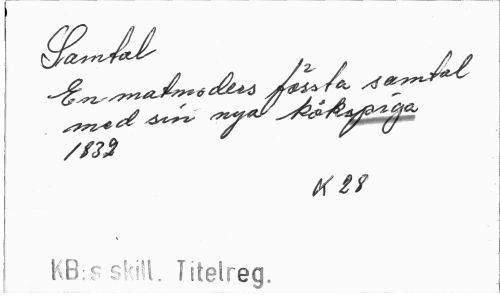 Samtal
En matmoders första samtal
med sin nya kökspiga
1832
K 28
KB:s skill. Titelreg.